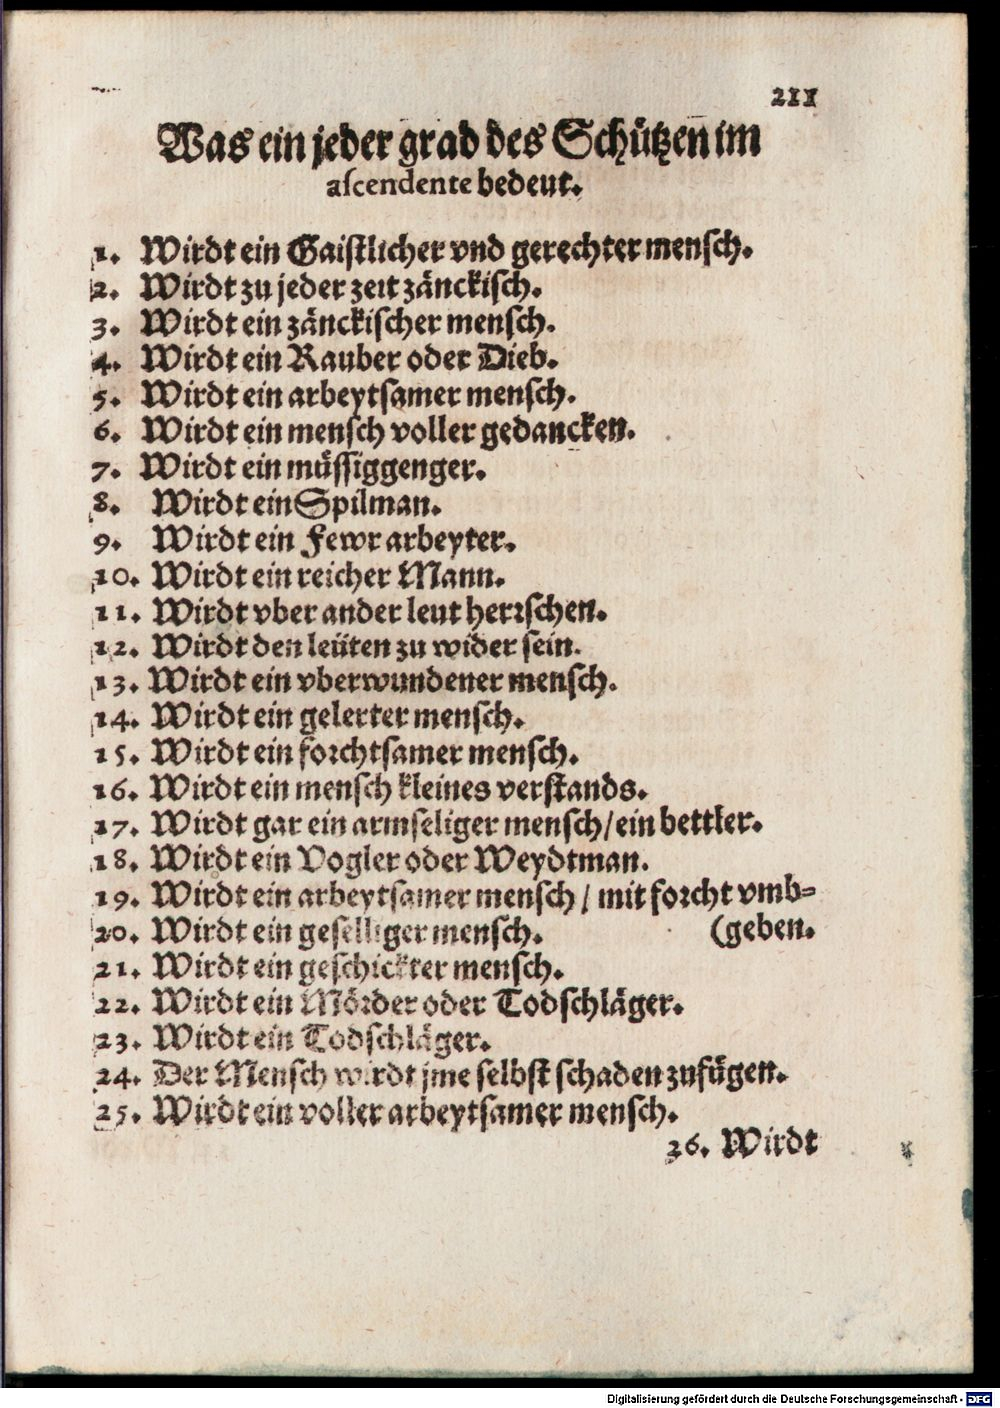 211
Was ein jeder grad des Schützen im
ascendente bedeut.
1. Wirdt ein Gaistlicher vnd gerechter mensch.
2. Wirdt zu jeder zeit zänckisch.
3. Wirdt ein zänckischer mensch.
4. Wirdt ein Rauber oder Dieb.
5. Wirdt ein arbeytsamer mensch.
6. Wirdt ein mensch voller gedancken.
7. Wirdt ein müssiggenger.
8. Wirdt ein Spilman.
9. Wirdt ein Fewr arbeyter.
10. Wirdt ein reicher Mann.
11. Wirdt vber ander leut herrschen.
12. Wirdt den leüten zu wider sein.
13. Wirdt ein vberwundener mensch.
14. Wirdt ein gelerter mensch.
15. Wirdt ein forchtsamer mensch.
16. Wirdt ein mensch kleines verstands.
17. Wirdt gar ein armseliger mensch/ein bettler.
18. Wirdt ein Vogler oder Weydtman.
19. Wirdt ein arbeytsamer mensch / mit forcht vmb=
20. Wirdt ein geselliger mensch. (geben.
21. Wirdt ein geschickter mensch.
22. Wirdt ein Mörder oder Todschläger.
23. Wirdt ein Todschläger.
24. Der Mensch wirdt jme selbst schaden zufügen.
25. Wirdt ein voller arbeytsamer mensch.
26. Wirdt
Digitalisierung gefördert durch die Deutsche Forschungsgemeinschaft - DFG